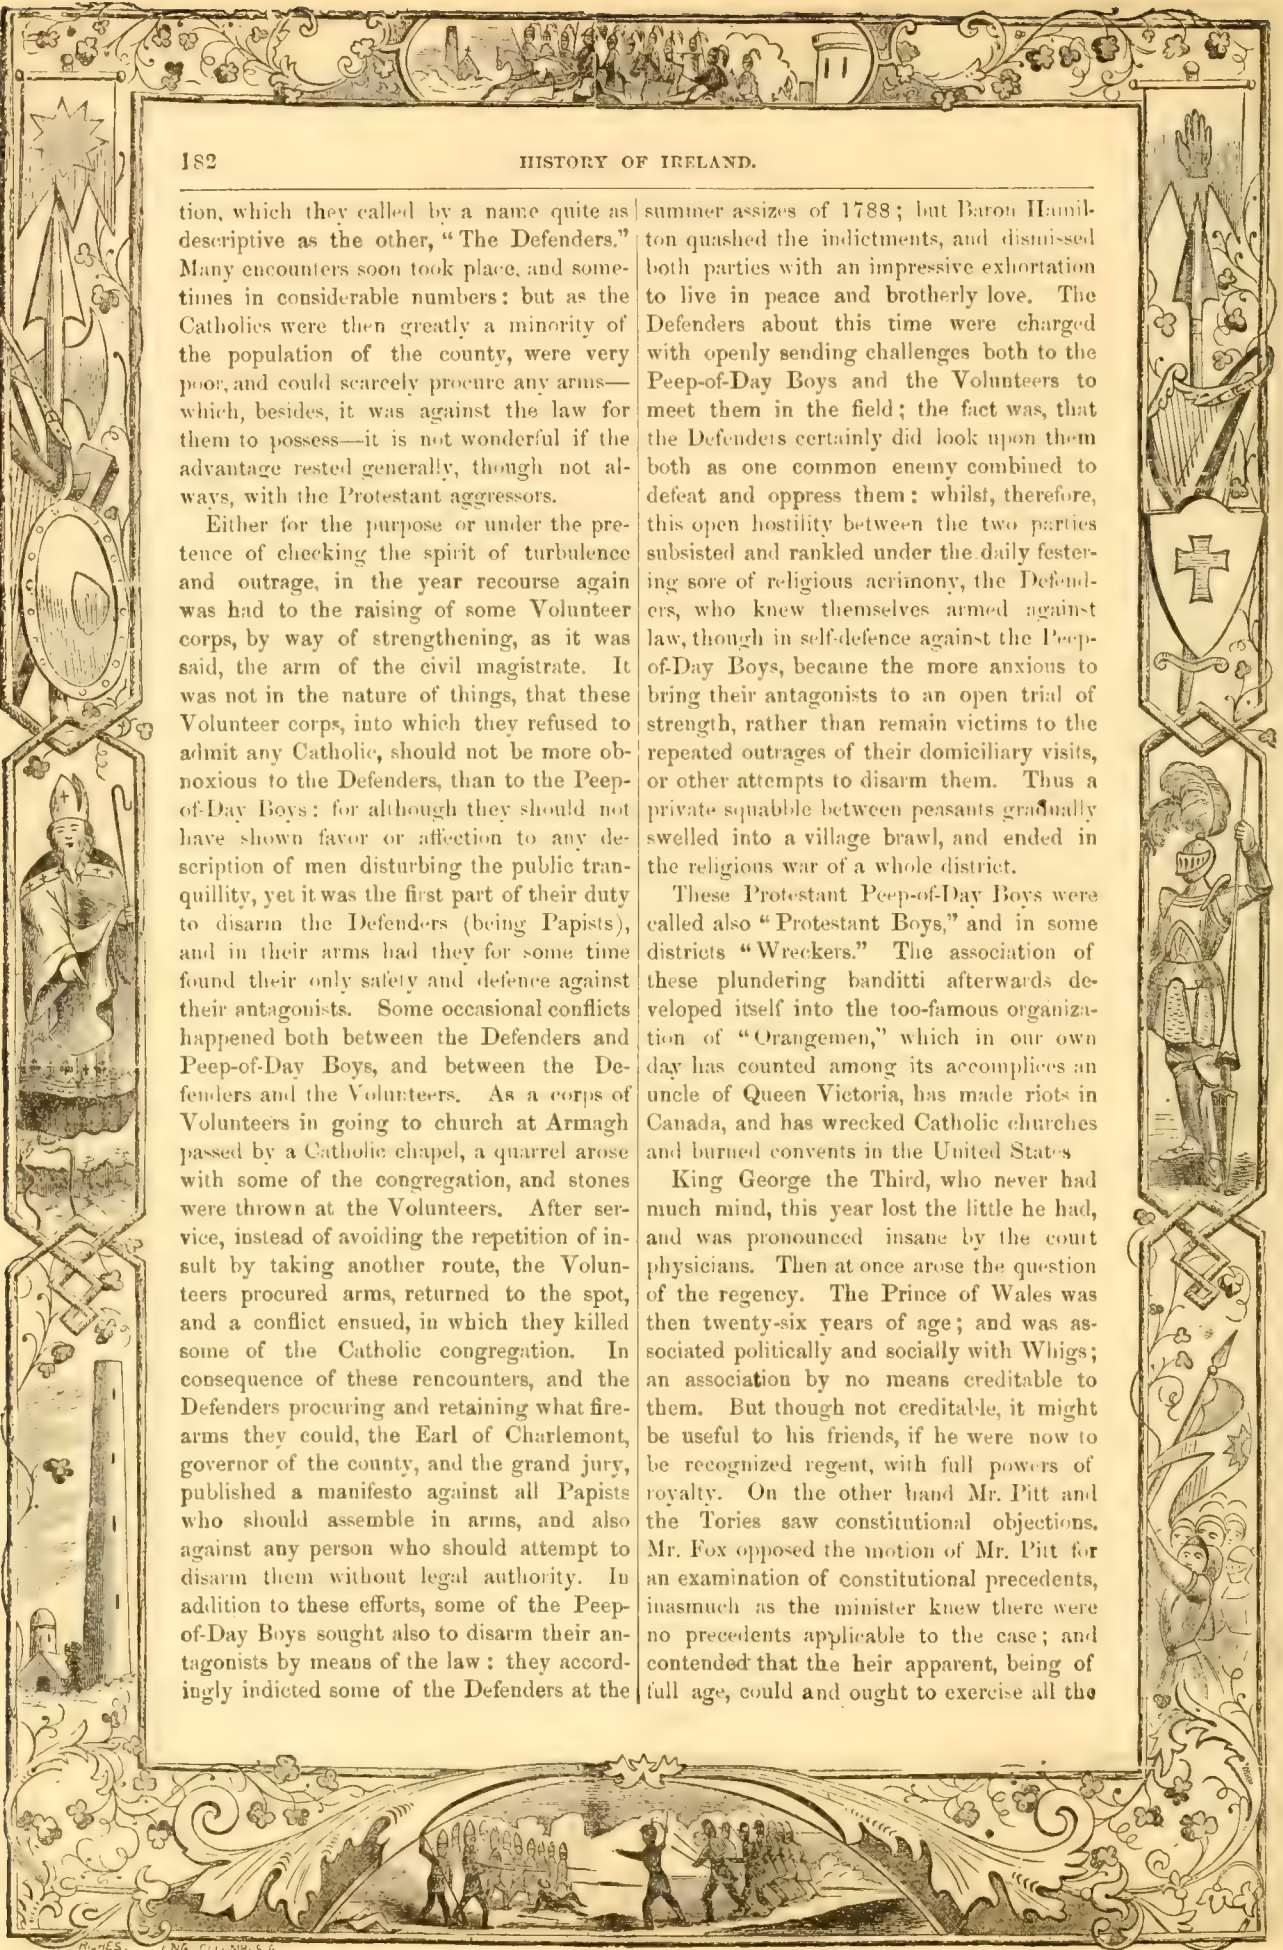 182
HISTORY OF IRELAND.
tion, which they called by a name quite as
descriptive as the other, “The Defenders.”
Many encounters soon took place, and some-
times in considerable numbers: but as the
Catholics were then greatly a minority of
the population of the county, were very
poor, and could scarcely procure any arms—
which, besides, it was against the law for
them to possess—it is not wonderful if the
advantage rested generally, though not al-
ways, with the Protestant aggressors.
Either for the purpose or under the pre-
tence of checking the spirit of turbulence
and outrage, in the year recourse again
was had to the raising of some Volunteer
corps, by way of strengthening, as it was
said, the arm of the civil magistrate. It
was not in the nature of things, that these
Volunteer corps, into which they refused to
admit any Catholic, should not be more ob-
noxious to the Defenders, than to the Peep-
of-Day Boys: for although they should not
have shown favor or affection to any de-
scription of men disturbing the public tran-
quillity, yet it was the first part of their duty
to disarm the Defenders (being Papists),
and in their arms had they for some time
found their only safety and defence against
their antagonists. Some occasional conflicts
happened both between the Defenders and
Peep-of-Day Boys, and between the De-
fenders and the Volunteers. As a corps of
Volunteers in going to church at Armagh
passed by a Catholic chapel, a quarrel arose
with some of the congregation, and stones
were thrown at the Volunteers. After ser-
vice, instead of avoiding the repetition of in-
sult by taking another route, the Volun-
teers procured arms, returned to the spot,
and a conflict ensued, in which they killed
some of the Catholic congregation. In
consequence of these rencounters, and the
Defenders procuring and retaining what fire-
arms they could, the Earl of Charlemont,
governor of the county, and the grand jury,
published a manifesto against all Papists
who should assemble in arms, and also
against any person who should attempt to
disarm them without legal authority. In
addition to these efforts, some of the Peep-
of-Day Boys sought also to disarm their an-
tagonists by means of the law: they accord-
ingly indicted some of the Defenders at the
summer assizes of 1788; but Baron Hamil-
ton quashed the indictments, and dismissed
both parties with an impressive exhortation
to live in peace and brotherly love. The
Defenders about this time were charged
with openly sending challenges both to the
Peep-of-Day Boys and the Volunteers to
meet them in the field; the fact was, that
the Defenders certainly did look upon them
both as one common enemy combined to
defeat and oppress them: whilst, therefore,
this open hostility between the two parties
subsisted and rankled under the daily fester-
ing sore of religious acrimony, the Defend-
ers, who knew themselves armed against
law, though in self-defence against the Peep-
of-Day Boys, became the more anxious to
bring their antagonists to an open trial of
strength, rather than remain victims to the
repeated outrages of their domiciliary visits,
or other attempts to disarm them. Thus a
private squabble between peasants gradually
swelled into a village brawl, and ended in
the religious war of a whole district.
These Protestant Peep-of-Day Boys were
called also “Protestant Boys,” and in some
districts “Wreckers.” The association of
these plundering banditti afterwards de-
veloped itself into the too-famous organiza-
tion of “Orangemen,” which in our own
day has counted among its accomplices an
uncle of Queen Victoria, has made riots in
Canada, and has wrecked Catholic churches
and burned convents in the United States
King George the Third, who never had
much mind, this year lost the little he had,
and was pronounced insane by the court
physicians. Then at once arose the question
of the regency. The Prince of Wales was
then twenty-six years of age; and was as-
sociated politically and socially with Whigs;
an association by no means creditable to
them. But though not creditable, it might
be useful to his friends, if he were now to
be recognized regent, with full powers of
royalty. On the other hand Mr. Pitt and
the Tories saw constitutional objections.
Mr. Fox opposed the motion of Mr. Pitt for
an examination of constitutional precedents,
inasmuch as the minister knew there were
no precedents applicable to the case; and
contended that the heir apparent, being of
full age, could and ought to exercise all the